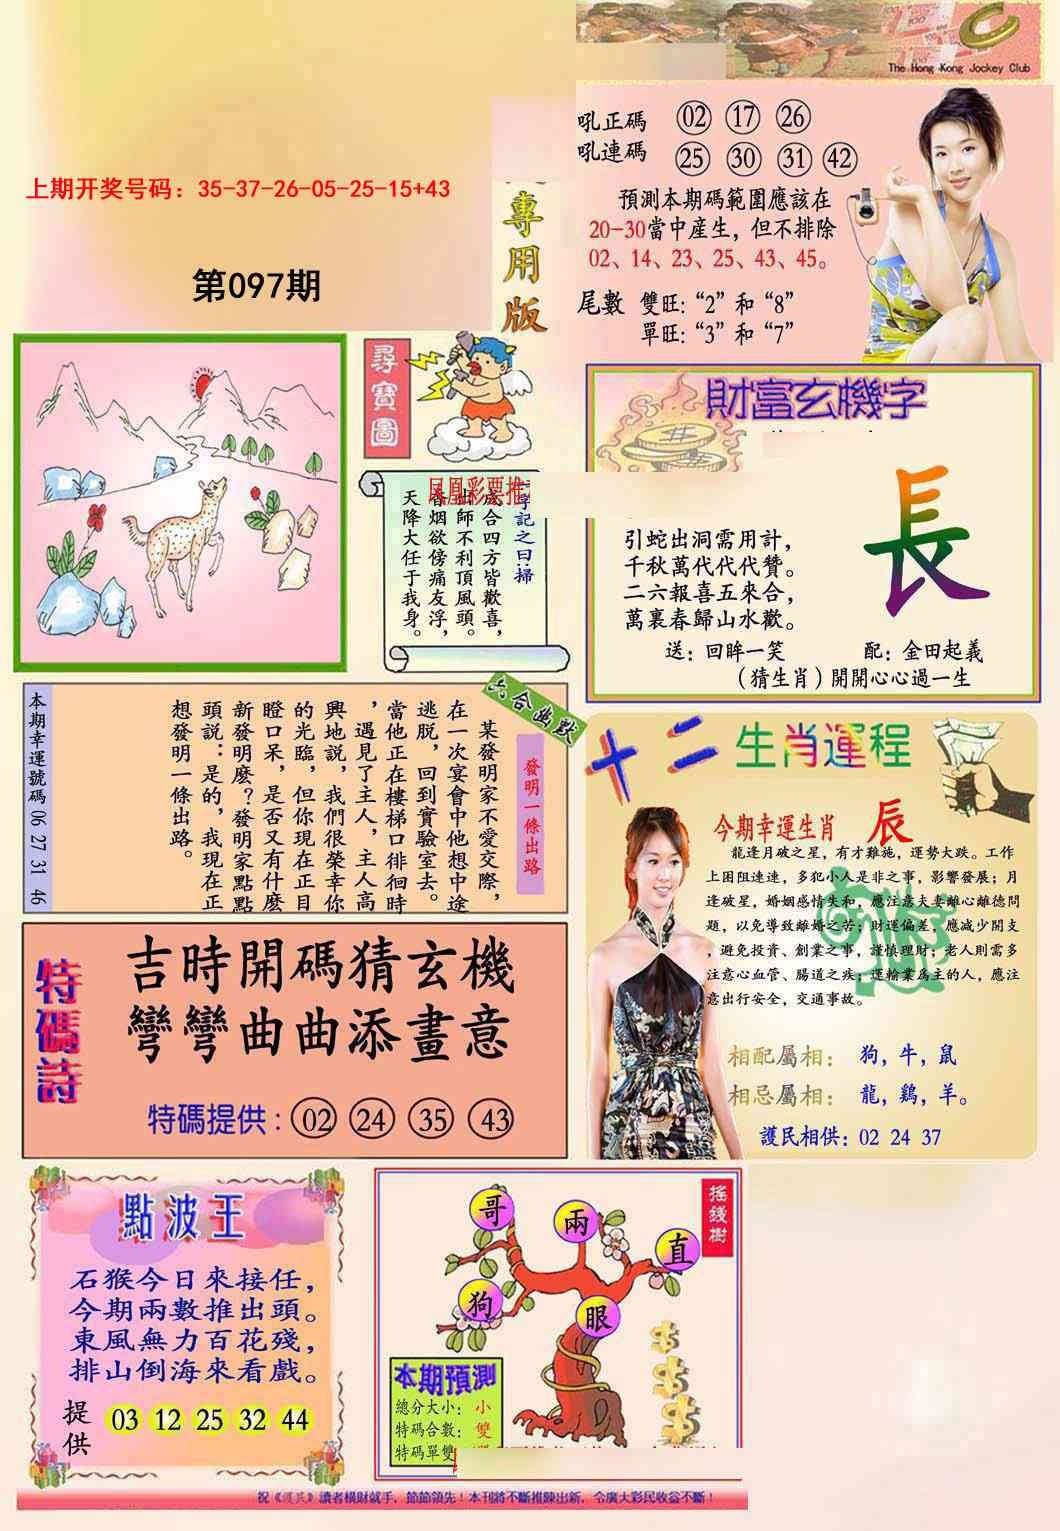 The Hong Kong Jockey Club
吼正碼 02 17 26
吼連碼 25 30 31 42
預測本期碼範圍應該在
20-30當中産生，但不排除
02、14、23、25、43、45。
尾數 雙旺:“2”和“8”
單旺:“3”和“7”
上期开奖号码：35-37-26-05-25-15+43
第097期
專用版
尋寶圖
凤凰彩票推
字記之曰:掃
成合四方皆歡喜，
出師不利頂風頭。
香烟欲傍痛友浮，
天降大任于我身。
財富玄機字
長
引蛇出洞需用計，
千秋萬代代代贊。
二六報喜五來合，
萬裏春歸山水歡。
送：回眸一笑 配：金田起義
（猜生肖）開開心心過一生
六合幽默
發明一條出路
某發明家不愛交際，
在一次宴會中他想中途
逃脱，回到實驗室去。
當他正在樓梯口徘徊時
，遇見了主人，主人高
興地説，我們很榮幸你
的光臨，但你現在正目
瞪口呆，是否又有什麽
新發明麽？發明家點點
頭説：是的，我現在正
想發明一條出路。
本期幸運號碼 06 27 31 46
十二生肖運程
今期幸運生肖 辰
龍逢月破之星，有才難施，運勢大跌。工作
上困阻連連，多犯小人是非之事，影響發展；月
逢破星，婚姻感情失和，應注意夫妻離心離德問
題，以免導致離婚之苦；財運偏差，應減少開支
，避免投資、創業之事，謹慎理財；老人則需多
注意心血管、腸道之疾；運輸業爲主的人，應注
意出行安全，交通事故。
相配屬相： 狗，牛，鼠
相忌屬相： 龍，鷄，羊。
護民相供：02 24 37
特碼詩
吉時開碼猜玄機
彎彎曲曲添畫意
特碼提供：02 24 35 43
點波王
石猴今日來接任，
今期兩數推出頭。
東風無力百花殘，
排山倒海來看戲。
提供 03 12 25 32 44
搖錢樹
哥 兩 直 狗 眼
本期預測
總分大小：小
特碼合數：雙
特碼單雙
祝《護民》讀者橫財就手，節節領先！本刊將不斷推陳出新，令廣大彩民收益不斷！